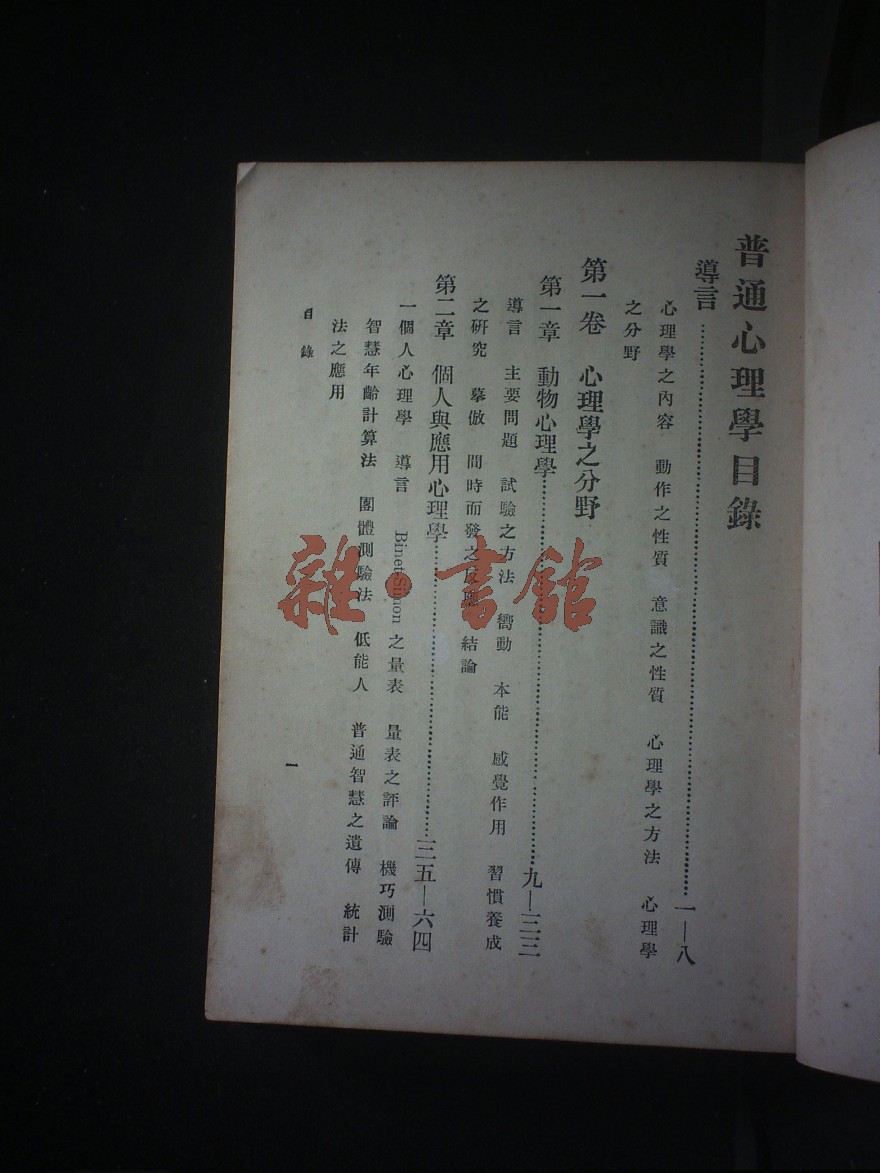 普通心理學目錄
導言……一—八
心理學之內容 動作之性質 意識之性質 心理學之方法 心理學
之分野
第一卷 心理學之分野
第一章 動物心理學……九—三三
導言 主要問題 試驗之方法 嚮動 本能 感覺作用 習慣養成
之研究 摹倣 間時而發之反應 結論
第二章 個人與應用心理學……三五—六四
一個人心理學 導言 Binet-Simon 之量表 量表之評論 機巧測驗
智慧年齡計算法 團體測驗法 低能人 普通智慧之遺傳 統計
法之應用
目錄
一
雜·書館